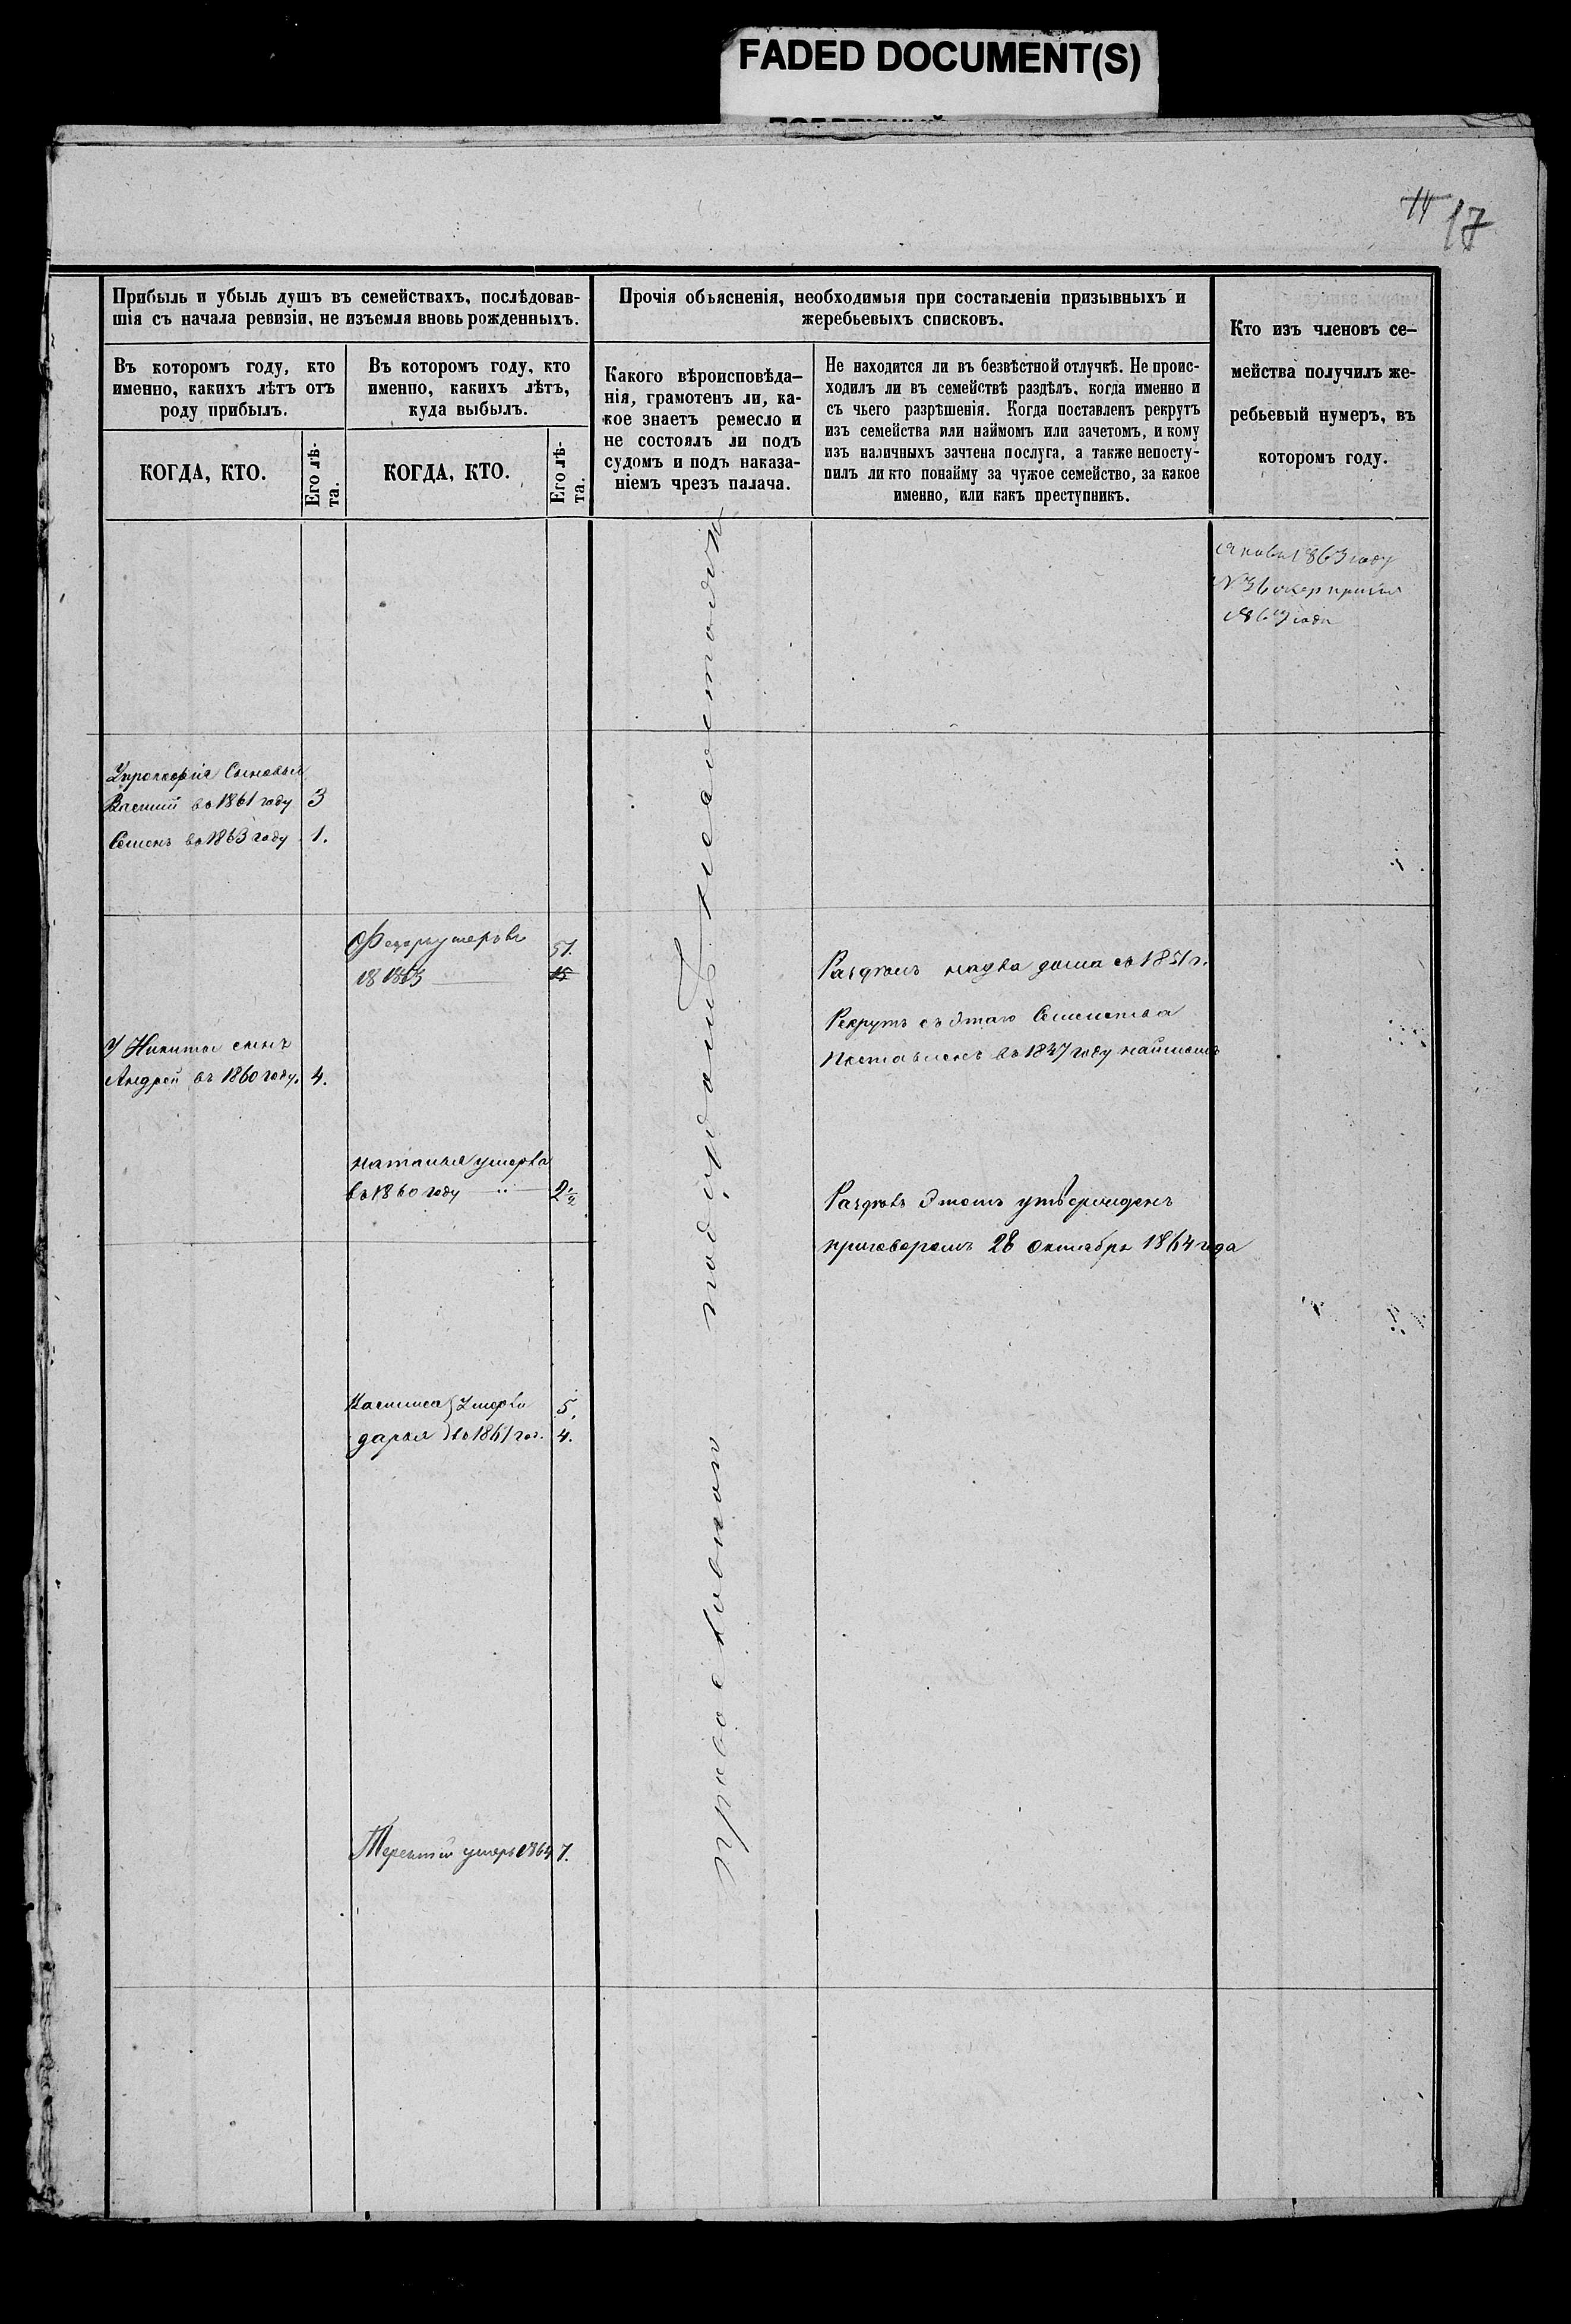 FADED DOCUMENT(S)
11
17
Прибыль и убыль душъ въ семействахъ, послѣдовав-
шія съ начала ревизіи, не изъемля вновь рожденныхъ.
Въ которомъ году, кто
именно, какихъ лѣтъ отъ
роду прибылъ.
Въ которомъ году, кто
именно, какихъ лѣтъ,
куда выбылъ.
КОГДА, КТО.
Его лѣ-
та.
КОГДА, КТО.
Его лѣ-
та.
Прочія объясненія, необходимыя при составленіи призывныхъ и
жеребьевыхъ списковъ.
Какого вѣроисповѣда-
нія, грамотенъ ли, ка-
кое знаетъ ремесло и
не состоялъ ли подъ
судомъ и подъ наказа-
ніемъ чрезъ палача.
Не находится ли въ безвѣстной отлучкѣ. Не проис-
ходилъ ли въ семействѣ раздѣлъ, когда именно и
съ чьего разрѣшенія. Когда поставленъ рекрутъ
изъ семейства или наймомъ или зачетомъ, и кому
изъ наличныхъ зачтена послуга, а также непосту-
пилъ ли кто понайму за чужое семейство, за какое
именно, или какъ преступникъ.
Кто изъ членовъ се-
мейства получилъ же-
ребьевый нумеръ, въ
которомъ году.
1863 году
№ 36
года
Упрокофія Сыновья
Василій во 1861 году 3
Семенъ во 1863 году 1.
Федоръ умеръ въ 51.
1863 15
У Никиты сынъ
Андрей въ 1860 году. 4.
наталья умерла
въ 1860 году 2 1/2
умерли 5.
дарья во 1861 год. 4.
Терентій умеръ 1864 7.
православнаго подсудомъ несостояли
на два дома съ 1851 г.
Рекрутъ съ Этаго Семейства
поставленъ въ 1847 году наймомъ
Раздѣлъ Этотъ утвержденъ
приговоромъ 28 Октября 1864 года